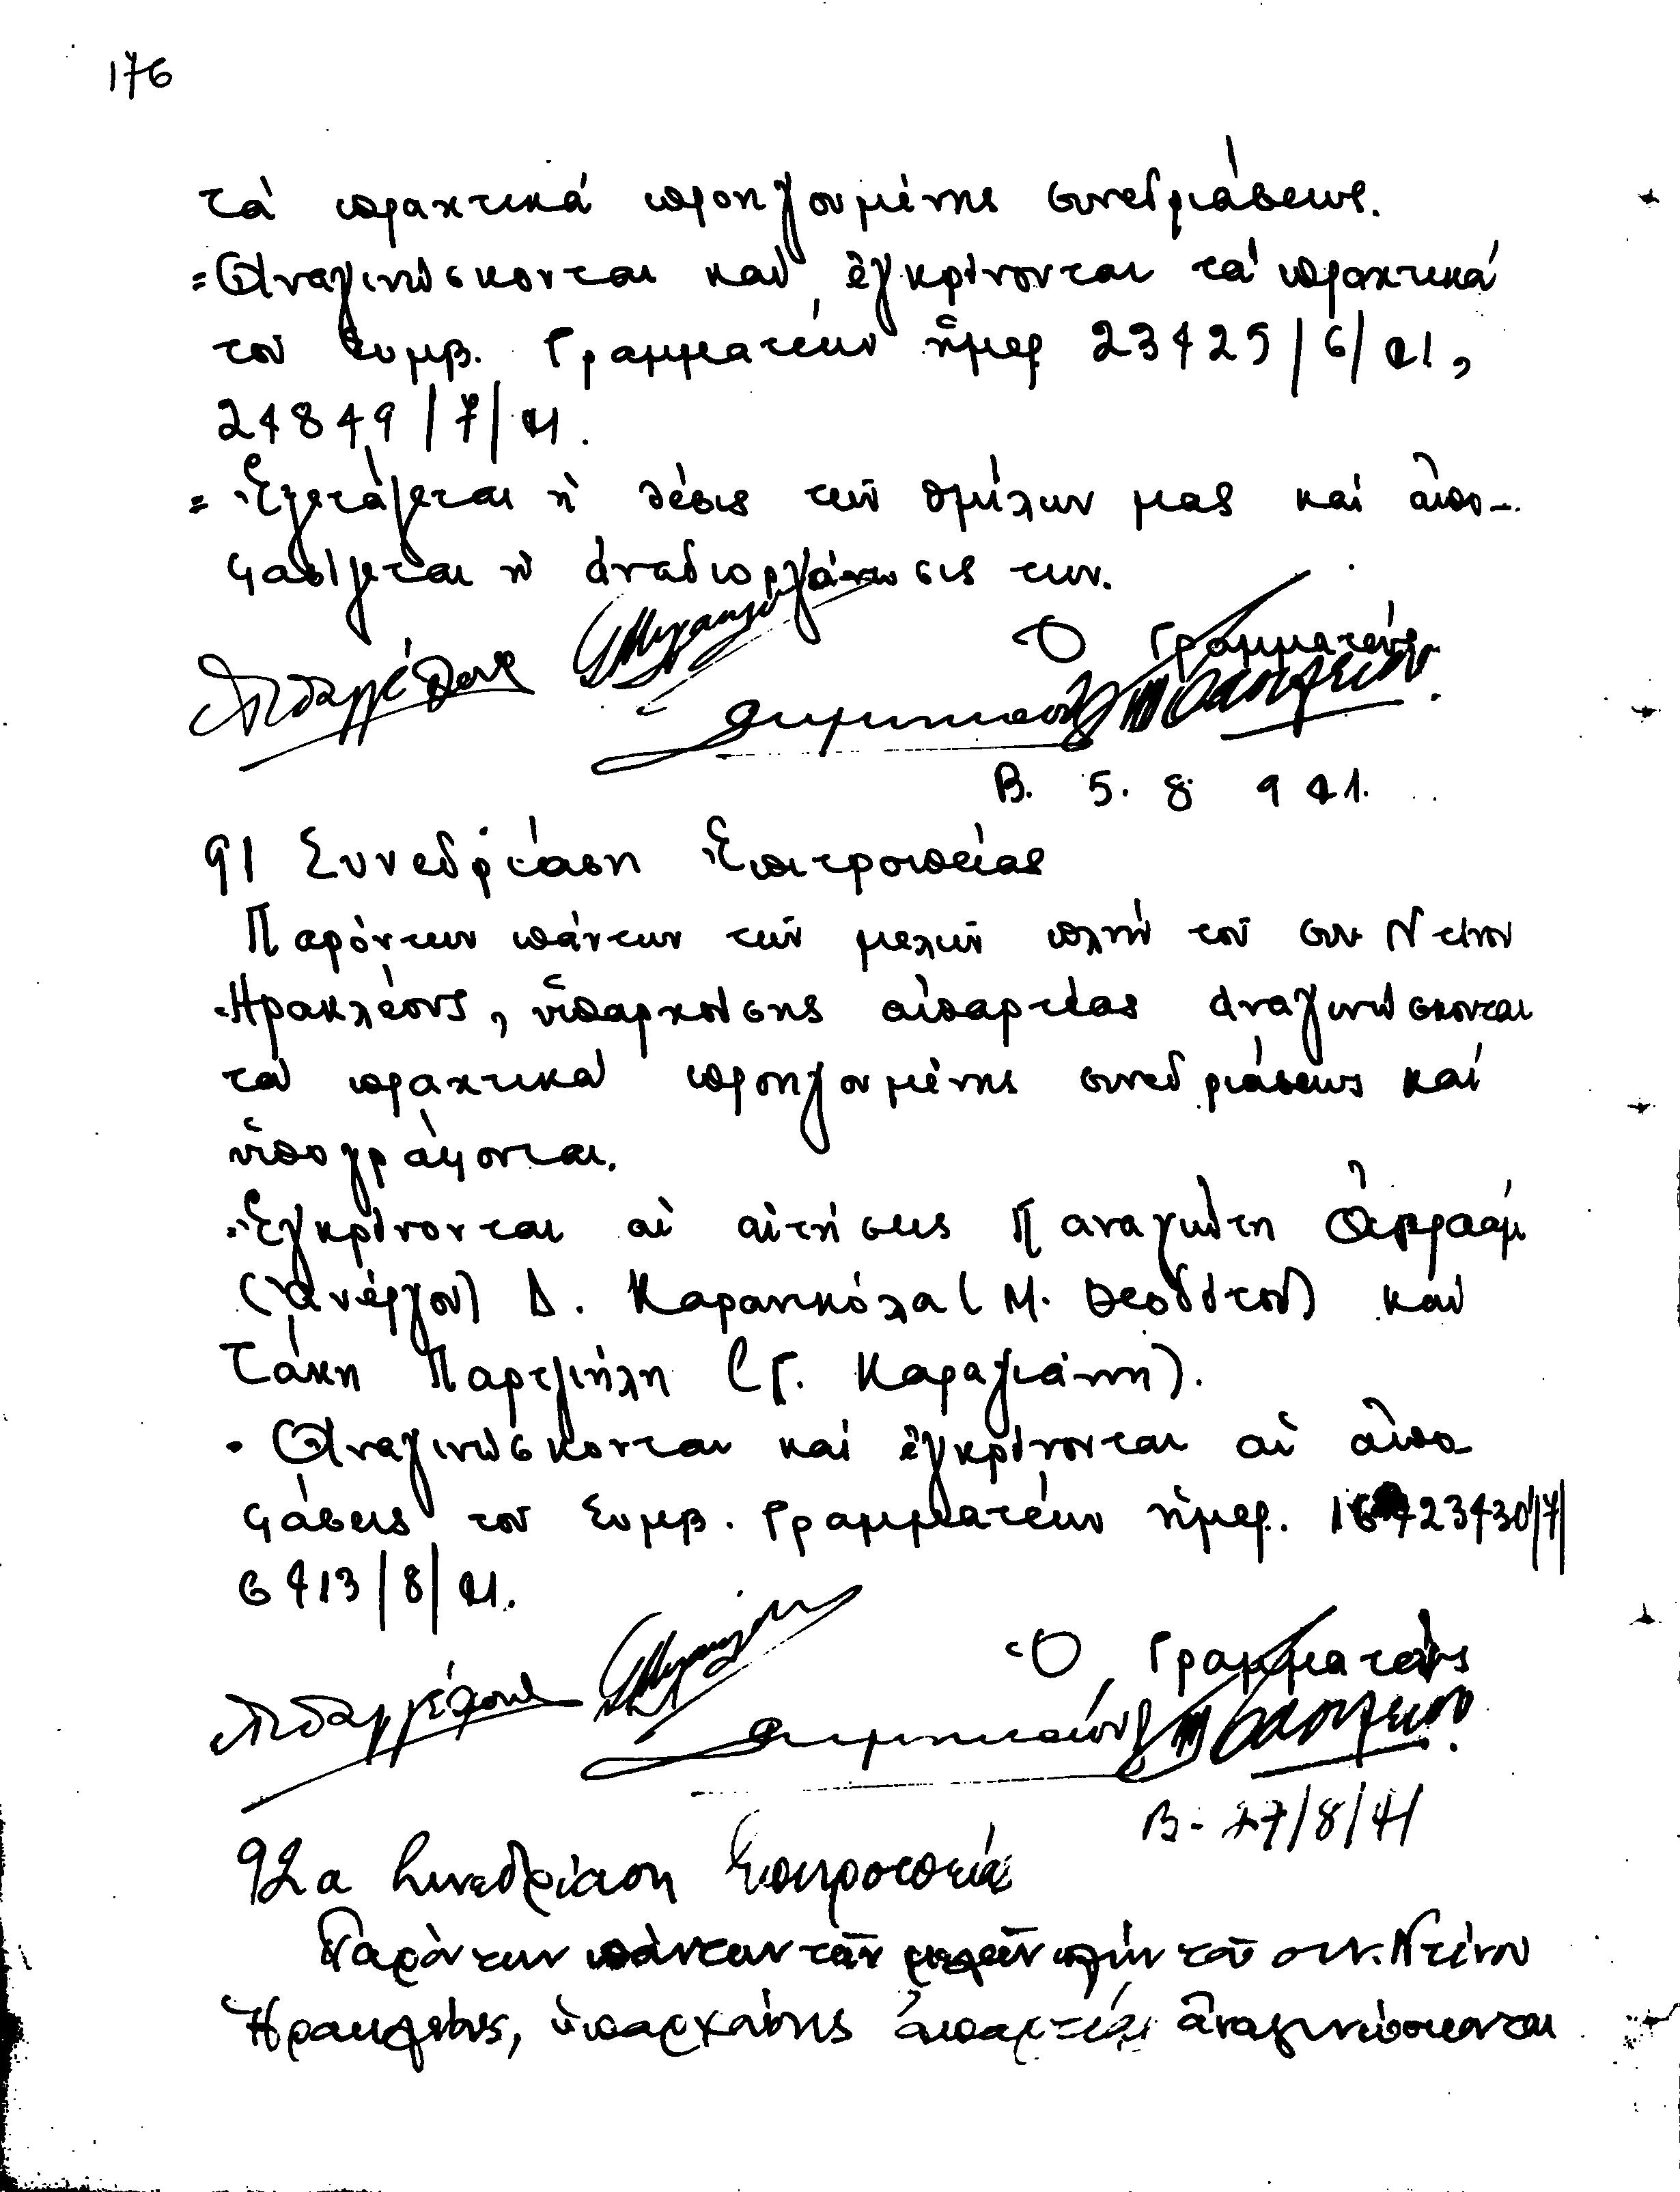 176
τὰ πρακτικά προηγουμένης συνεδριάσεως.
= Ἀναγινώσκονται καὶ ἐγκρίνονται τὰ πρακτικά
τοῦ Συμβ. Γραμματέων ἡμερ 23425/6/41,
24849/7/41.
= Ἐξετάζεται ἡ θέσις τῶν ὁμίλων μας καὶ ἀπο-
φασίζεται ἡ ἀναδιοργάνωσις των.
Ὁ Γραμματεύς
Β. 5. 8 941.
91 Συνεδρίαση Ἐπιτροπείας
Παρόντων πάντων τῶν μελῶν πλὴν τοῦ συν Ντίνου
Ἡρακλέους, ὑπαρχούσης ἀπαρτίας ἀναγινώσκονται
τὰ πρακτικὰ προηγουμένης συνεδριάσεως καὶ
ὑπογράφονται.
Ἐγκρίνονται αἱ αἰτήσεις Παναγιώτη Ἀβραάμ
(Ἀνέργου) Δ. Καρανικόλα (Μ. Θεοδότου) καὶ
Τάκη Παρτζιήλη (Γ. Καραγιάννη).
· Ἀναγινώσκονται καὶ ἐγκρίνονται αἱ ἀπο
φάσεις τοῦ Συμβ. Γραμματέων ἡμερ. 16423430/7/
6413/8/41.
Ὁ Γραμματεύς
Β- 27/8/41
92α Συνεδρίαση Ἐπιτροπεία
Παρόντων πάντων τῶν μελῶν πλὴν τοῦ συν. Ντίνου
Ἡρακλέους, ὑπαρχούσης ἀπαρτίας ἀναγινώσκονται